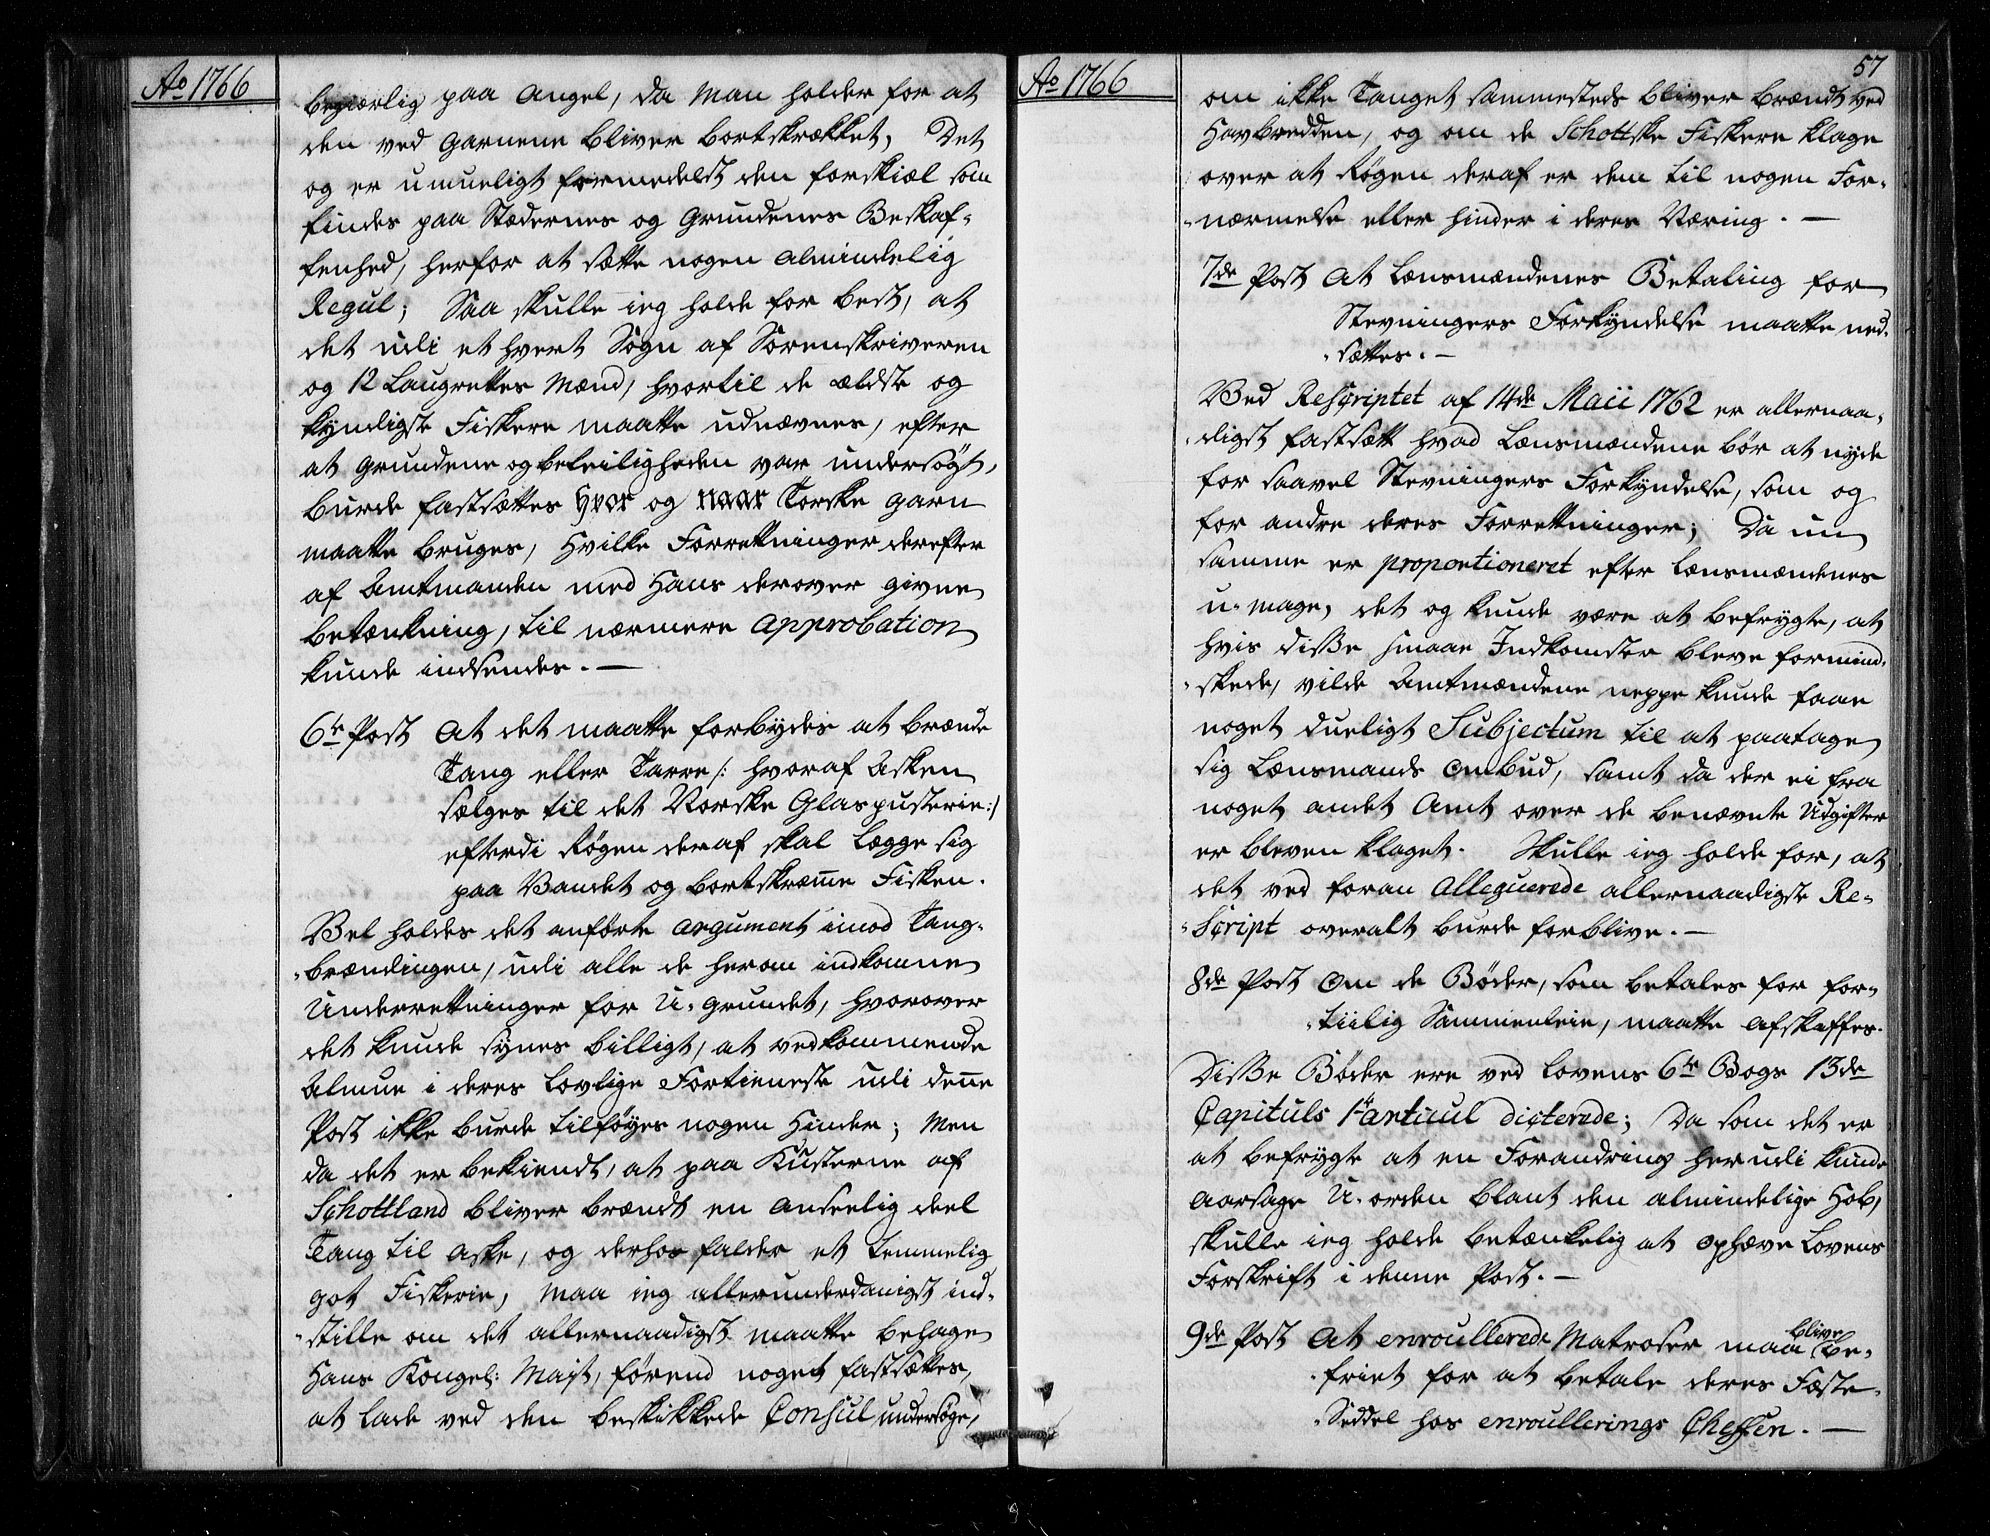 Ao 1766
begiærlig paa Angel, da Man holder for at
den ved Garnene bliver bortskrækket, Det
og er umueligt formedelst den forskiæl som
findes paa Stædernes og Grundenes Beskaf-
fenhed, herfor at sætte nogen almindelig
Regul; Saa skulle ieg holde for best, at
det udi et hvert Sogn af Sorenskriveren
og 12 Laugrettes Mænd, hvortil de ældste og
kyndigste Fiskere maatte udnævnes, efter
at Grundene og beleiligheden var undersøgt,
burde fastsættes hvor og naar Torske garn
maatte bruges, hvilke Forretninger derefter
af Amtmanden med Hans derover givne
betænkning, til nærmere Approbation
kunde indsendes. —
6te Post At det maatte forbydes at brænde
Tang eller Tarre /: hvoraf Asken
sælges til det Norske Glaspusterie :/
efterdi Røgen deraf skal lægge sig
paa Vandet og bortskræme Fisken.
Vel holdes det anførte argument imod Tang-
-brændingen, udi alle de herom indkomne
Underretninger for U-grundet, hvorover
det kunde synes billigt, at vedkommende
Almue i deres lovlige Fortieneste udi dene
Post ikke burde tilføyes nogen Hinder; Men
da det er bekiendt, at paa Kusterne af
Schottland bliver brændt en anseelig deel
Tang til Aske, og derhos falder et temmelig
got Fiskerie, maa ieg allerunderdanigst ind-
-stille om det allernaadigst maatte behage
Hans Kongel: Majst, førend noget fastsættes,
at lade ved den beskikkede Consul undersøge,
Ao 1766
57
om ikke Tanget sammesteds bliver brændt ved
Havbredden, og om de Schottske Fiskere klage
over at Røgen deraf er dem til nogen For-
-nærmelse eller hinder i deres Næring. —
7de Post At Lænsmændenes Betaling for
Stevningers Forkyndelse maatte ned-
-sættes. —
Ved Rescriptet af 14de Maii 1762 er allernaa-
-digst fastsætt hvad Lænsmændene bør at nyde
for saavel Stevningers Forkyndelse, som og
for andre deres Forretninger; Da nu
samme er proportioneret efter Lænsmændenes
u-mage, det og kunde være at befrygte, at
hvis disse smaae Indkomster bleve formind-
-skede, vilde Amtmændene neppe kunde faae
noget dueligt Subjectum til at paatage
sig Lænsmands Ombud, samt da der ei fra
noget andet Amt over de benævnte Udgifter
er bleven klaget. Skulle ieg holde for, at
det ved foran Alleguerede allernaadigste Re-
-script overalt burde forblive. —
8de Post Om de Bøder, som betales for for-
-tiilig Sammenleie, maatte afskaffes.
Disse Bøder ere ved Lovens 6te Bogs 13de
Capituls 1te Articul dicterede; Da som det er
at befrygte at en Forandring her udi kunde
aarsage U-orden blant den almindelige Hob,
skulle ieg holde betænkelig at ophæve Lovens
Forskrift i denne Post. —
9de Post At enroullerede Matroser maa blive be-
-friet for at betale deres Fæste-
-Seddel hos enroullerings Cheffen. —